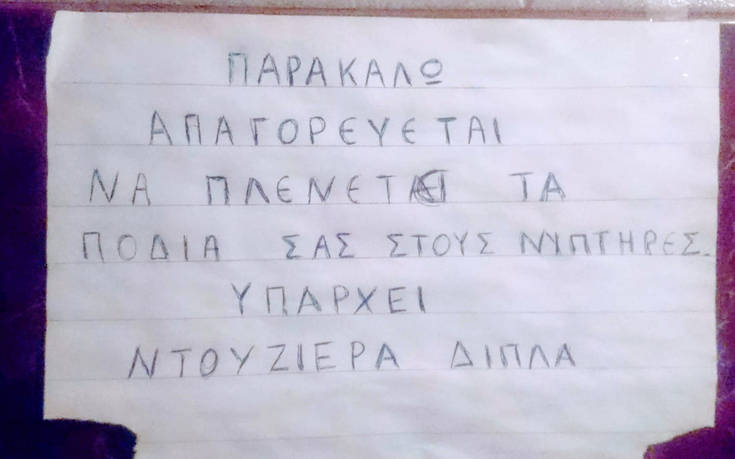 ΠΑΡΑΚΑΛΩ
ΑΠΑΓΟΡΕΥΕΤΑΙ
ΝΑ ΠΛΕΝΕΤΕ ΤΑ
ΠΟΔΙΑ ΣΑΣ ΣΤΟΥΣ ΝΥΠΤΗΡΕΣ.
ΥΠΑΡΧΕΙ
ΝΤΟΥΖΙΕΡΑ ΔΙΠΛΑ